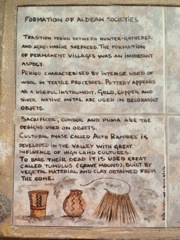 FORMATION OF ALDEAN SOCIETIES
TRADITION PERIOD BETWEEN HUNTER-GATHERER
AND AGRO-MARINE SHEPHERD. THE FORMATION
OF PERMANENT VILLAGES WAS AN IMPORTANT
ASPECT.
PERIOD CHARACTERISED BY INTENSE USED OF
WOOL IN TEXTILE PROCESSES. POTTERY APPEARS
AS A USEFUL INSTRUMENT. GOLD, COPPER AND
SILVER NATIVE METAL ARE USED IN DECORATIVE
OBJETS.
SACRIFICER, CONDOR AND PUMA ARE THE
DESIGNS USED ON OBJETS.
CULTURAL PHASE CALLED ALTO RAMIREZ IS
DEVELOPED IN THE VALLEY WITH GREAT
INFLUENCE OF HIGH LAND CULTURES.
TO BAKE THEIR DEAD IT IS USED GREAT
CALLED TUMULUS (GRAVE MOUND), BUILT BY
VEGETAL MATERIAL AND CLAY OBTAINED FROM
THE ZONE.